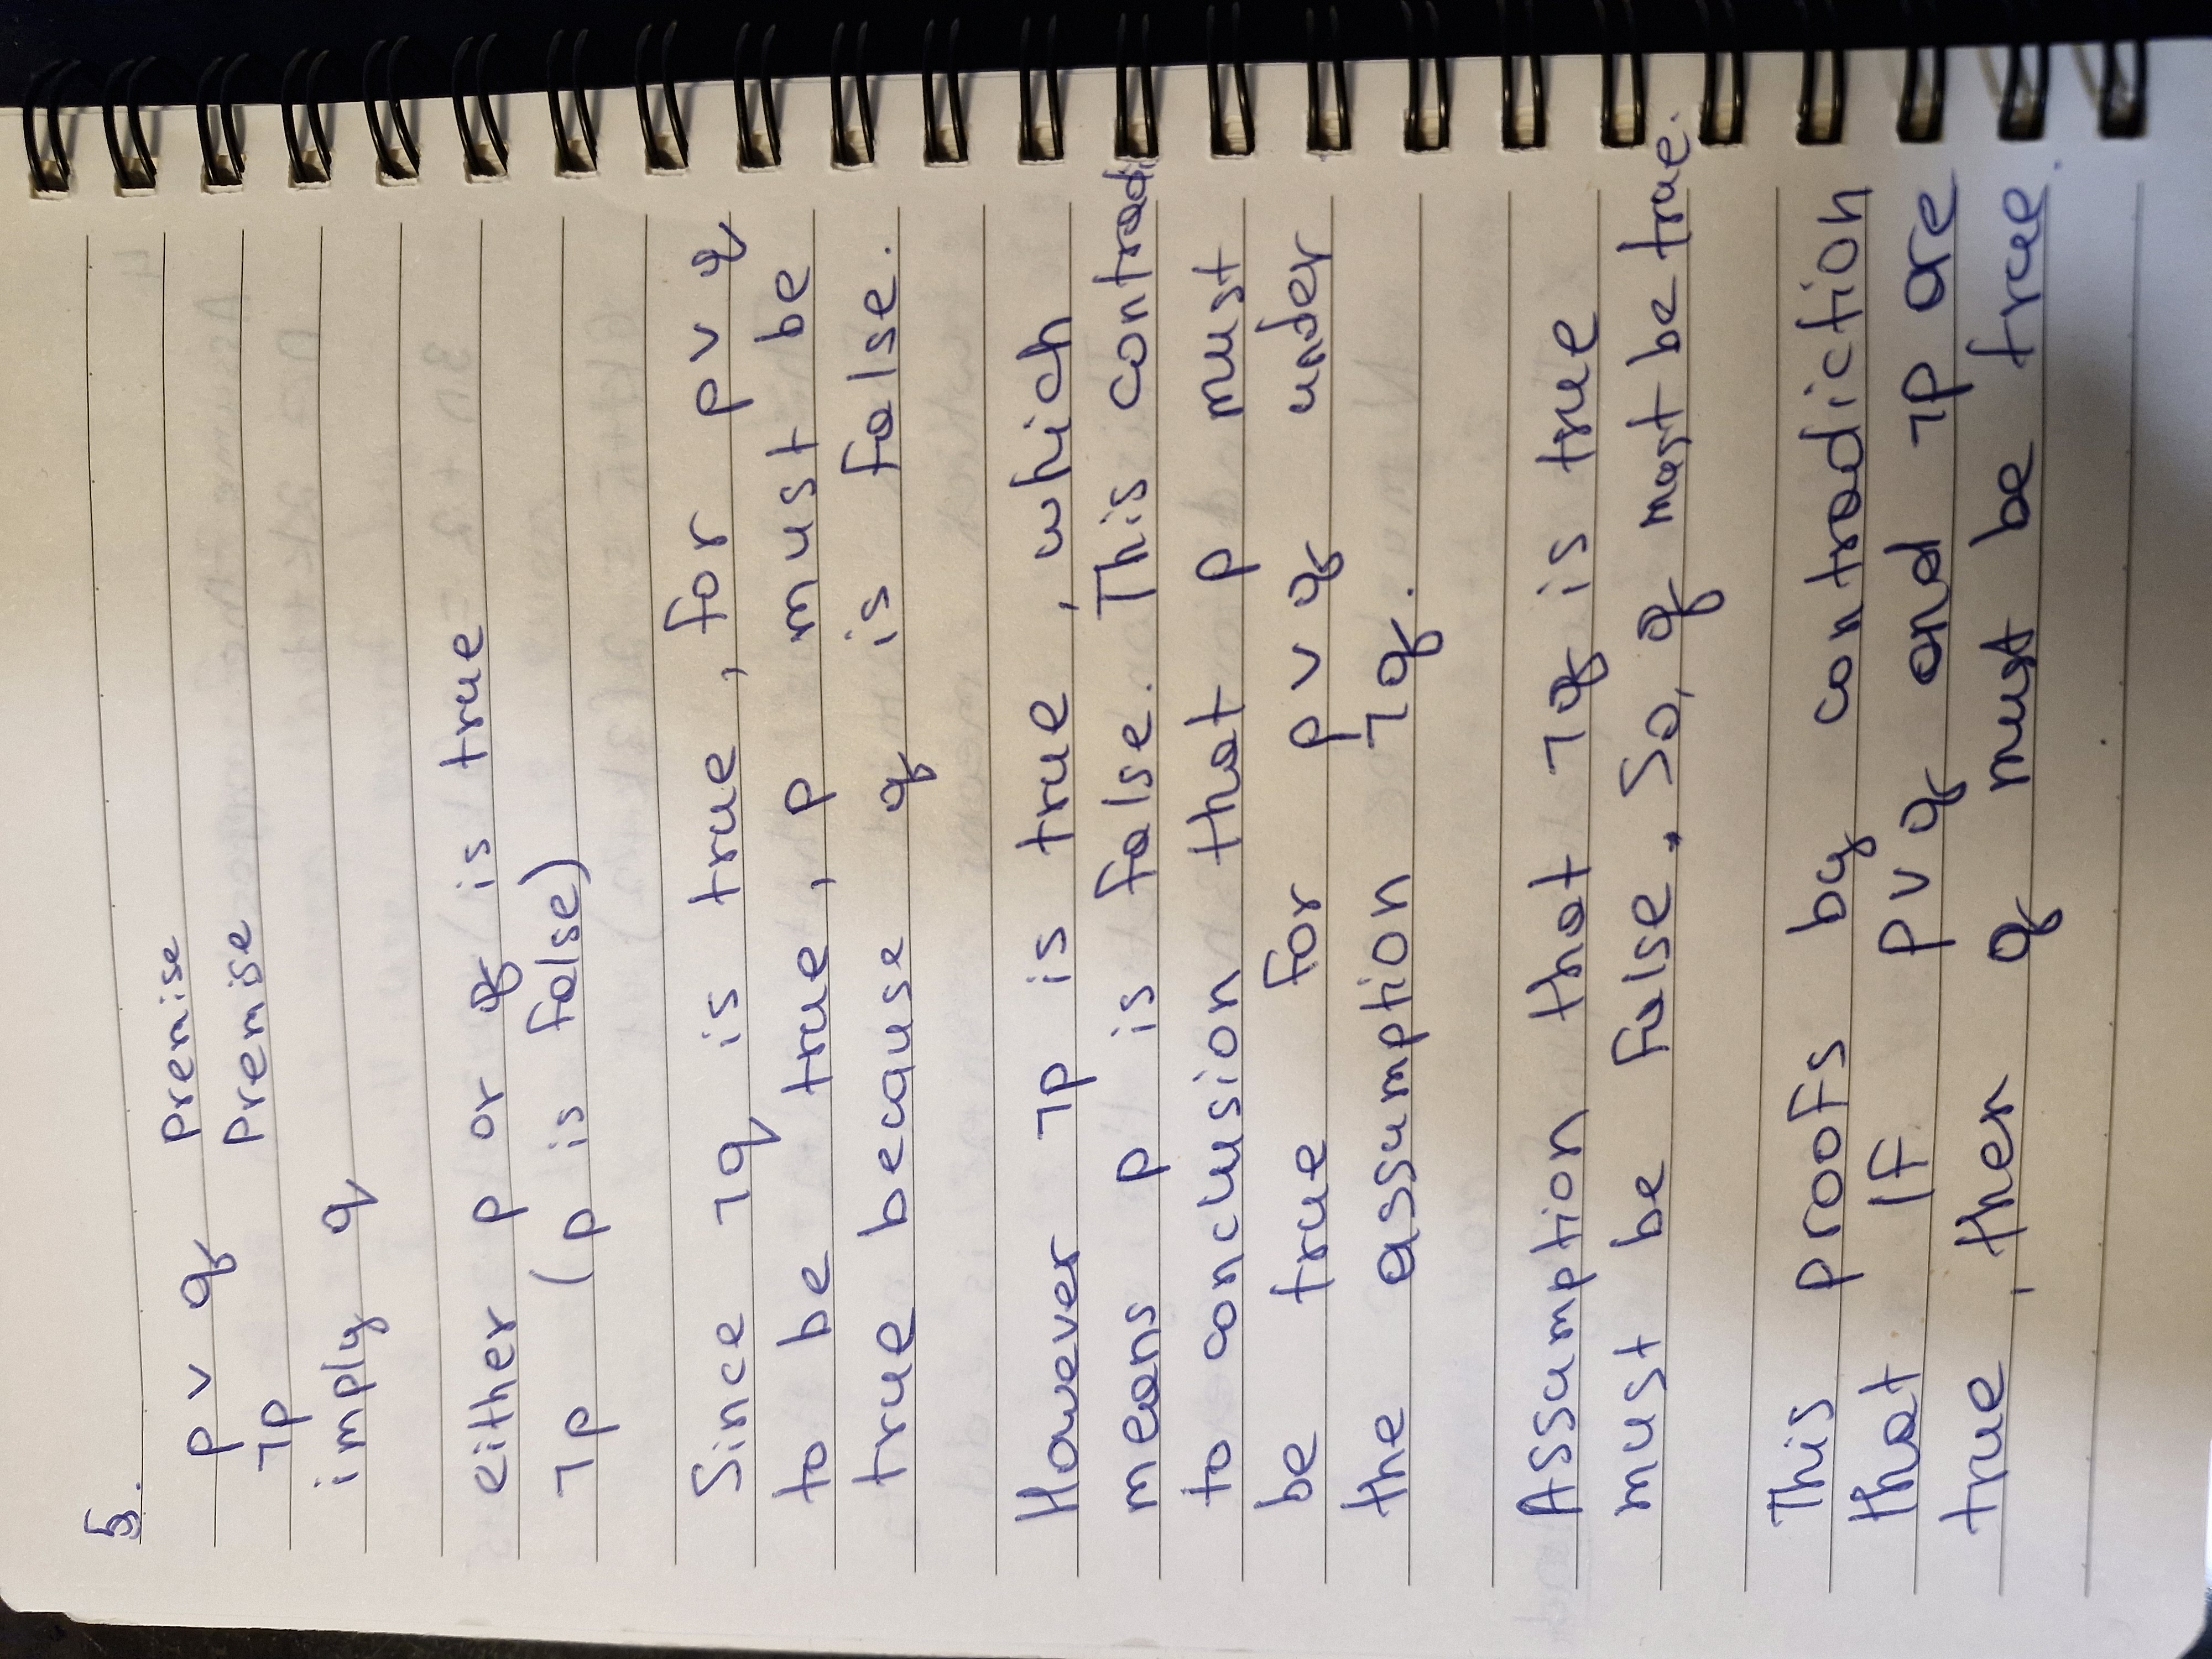 5.
p ∨ q premise
¬p Premise
imply q
either p or q is true
¬p (p is false)
Since ¬q is true, for p ∨ q
to be true, p must be
true because q is false.
However ¬p is true, which
means p is false. This contradi
to conclusion that p must
be true for p ∨ q under
the assumption ¬q.
Assumption that ¬q is true
must be false. So, q must be true.
This proofs by contradiction
that if p ∨ q and ¬p are
true, then q must be true.